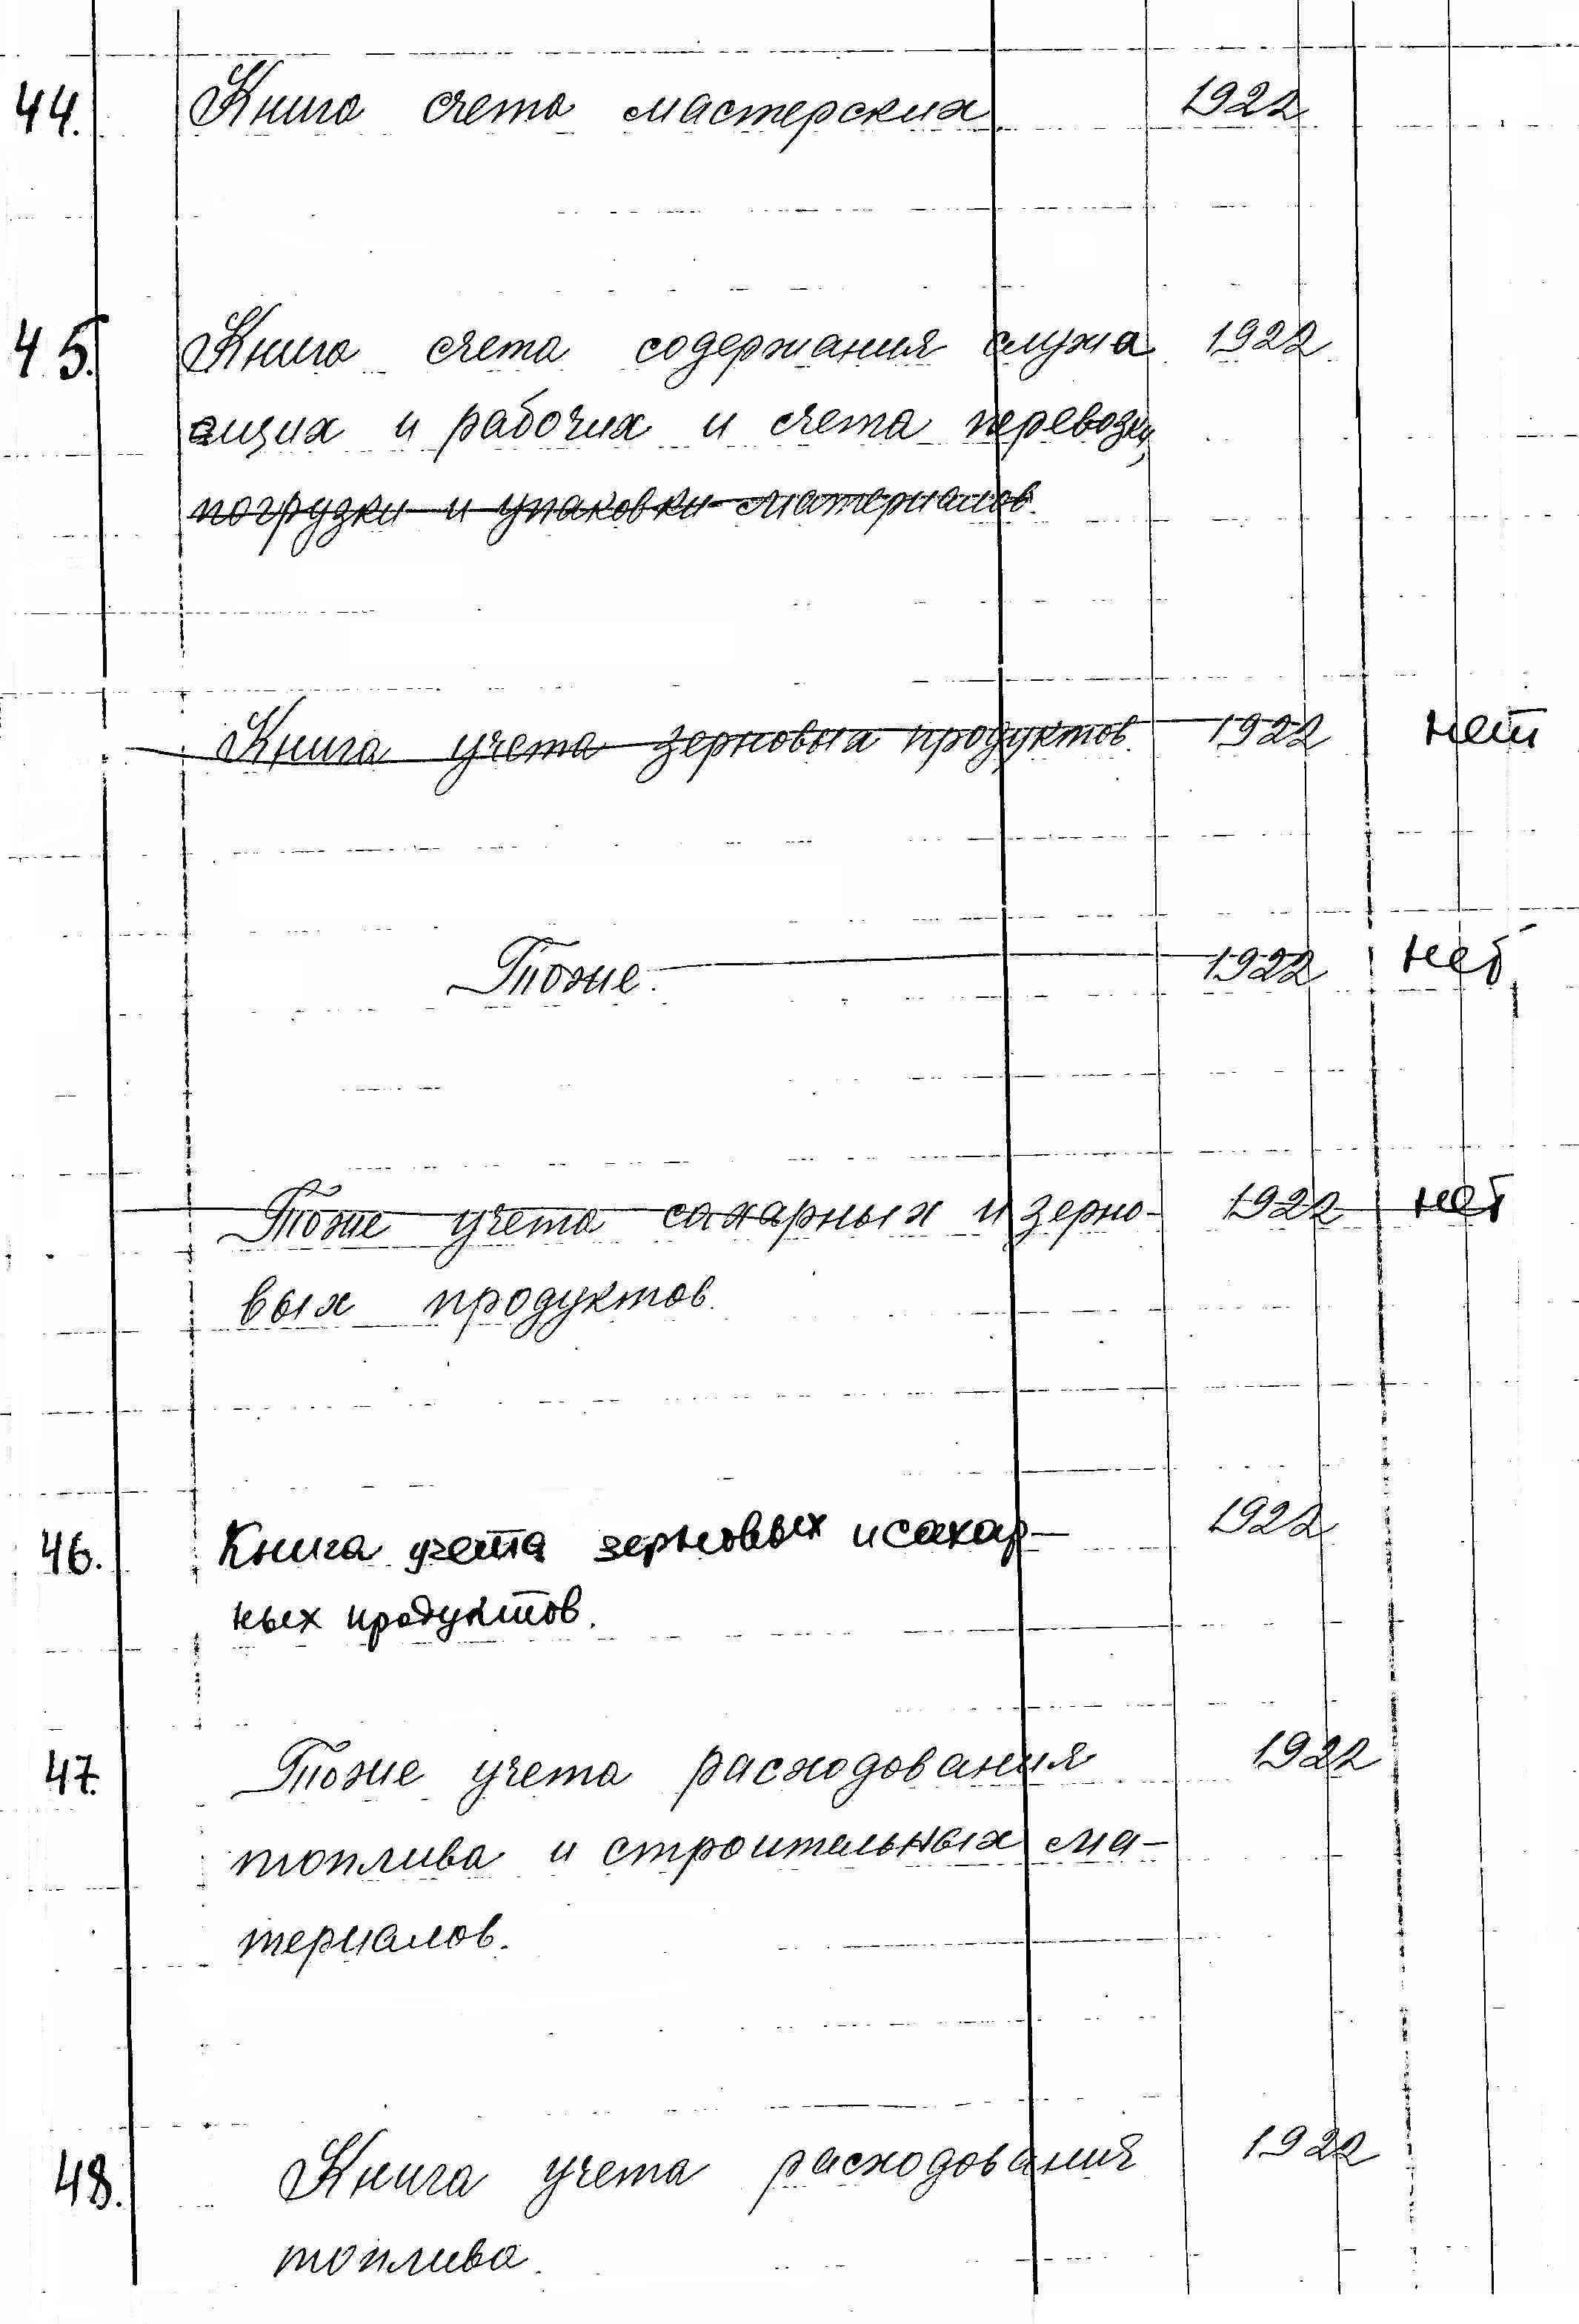 44. Книга счета мастерских 1922
45. Книга счета содержания служа 1922
ащих и рабочих и счета перевозки,
погрузки и упаковки материалов.
Книга учета зерновых продуктов. 1922 нет
Тоже. 1922 нет
Тоже учета сахарных и зерно- 1922 нет
вых продуктов.
46. Книга учета зерновых и сахар- 1922
ных продуктов.
47. Тоже учета расходования 1922
топлива и строительных ма-
териалов.
48. Книга учета расходования 1922
топлива.